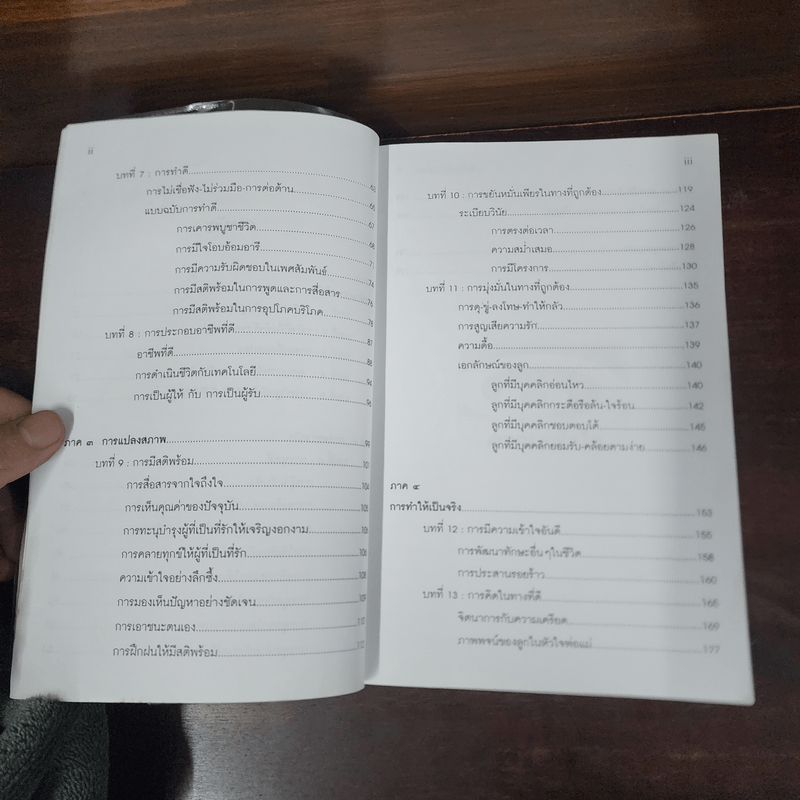 ii
บทที่ 7 : การทำดี
การไม่เชื่อฟัง-ไม่ร่วมมือ-การต่อต้าน
แบบฉบับการทำดี 66
การเคารพบูชาชีวิต 67
การมีใจโอบอ้อมอารี 68
การมีความรับผิดชอบในเพศสัมพันธ์ 71
การมีสติพร้อมในการพูดและการสื่อสาร 74
การมีสติพร้อมในการอุปโภคบริโภค 76
บทที่ 8 : การประกอบอาชีพที่ดี
อาชีพที่ดี 87
การดำเนินชีวิตกับเทคโนโลยี 88
การเป็นผู้ให้ กับ การเป็นผู้รับ
ภาค ๓ การแปลงสภาพ 99
บทที่ 9 : การมีสติพร้อม 101
การสื่อสารจากใจถึงใจ 104
การเห็นคุณค่าของปัจจุบัน 105
การทะนุบำรุงผู้ที่เป็นที่รักให้เจริญงอกงาม
การคลายทุกข์ให้ผู้ที่เป็นที่รัก 106
ความเข้าใจอย่างลึกซึ้ง 108
การมองเห็นปัญหาอย่างชัดเจน 109
การเอาชนะตนเอง 110
การฝึกฝนให้มีสติพร้อม 112
iii
บทที่ 10 : การขยันหมั่นเพียรในทางที่ถูกต้อง 119
ระเบียบวินัย 124
การตรงต่อเวลา 126
ความสม่ำเสมอ 128
การมีโครงการ 130
บทที่ 11 : การมุ่งมั่นในทางที่ถูกต้อง 135
การดุ-ขู่-ลงโทษ-ทำให้กลัว 136
การสูญเสียความรัก 137
ความดื้อ 139
เอกลักษณ์ของลูก 140
ลูกที่มีบุคคลิกอ่อนไหว 140
ลูกที่มีบุคคลิกกระตือรือล้น-ใจร้อน 142
ลูกที่มีบุคคลิกชอบตอบโต้ 145
ลูกที่มีบุคคลิกยอมรับ-คล้อยตามง่าย 146
ภาค ๔
การทำให้เป็นจริง 153
บทที่ 12 : การมีความเข้าใจอันดี 155
การพัฒนาทักษะอื่นๆในชีวิต 158
การประสานรอยร้าว 160
บทที่ 13 : การคิดในทางที่ดี 165
จิตนาการกับความเครียด 169
ภาพพจน์ของลูกในหัวใจพ่อแม่ 177